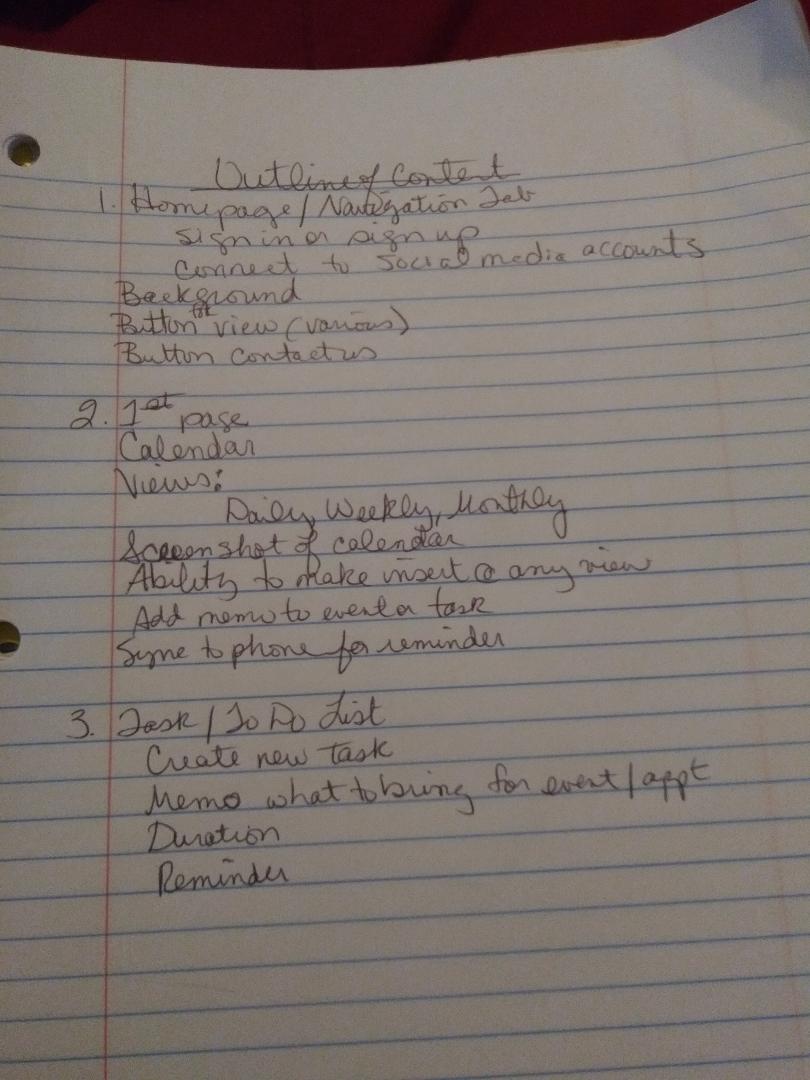 Outline of Content
1. Homepage / Navigation Tab
Sign in or sign up
Connect to social media accounts
Background
Button for view (various)
Button contact us
2. 1st page
Calendar
Views:
Daily, Weekly, Monthly
Screenshot of calendar
Ability to make insert @ any view
Add memo to event or task
Sync to phone for reminder
3. Task / To Do List
Create new task
Memo what to bring for event / appt
Duration
Reminder